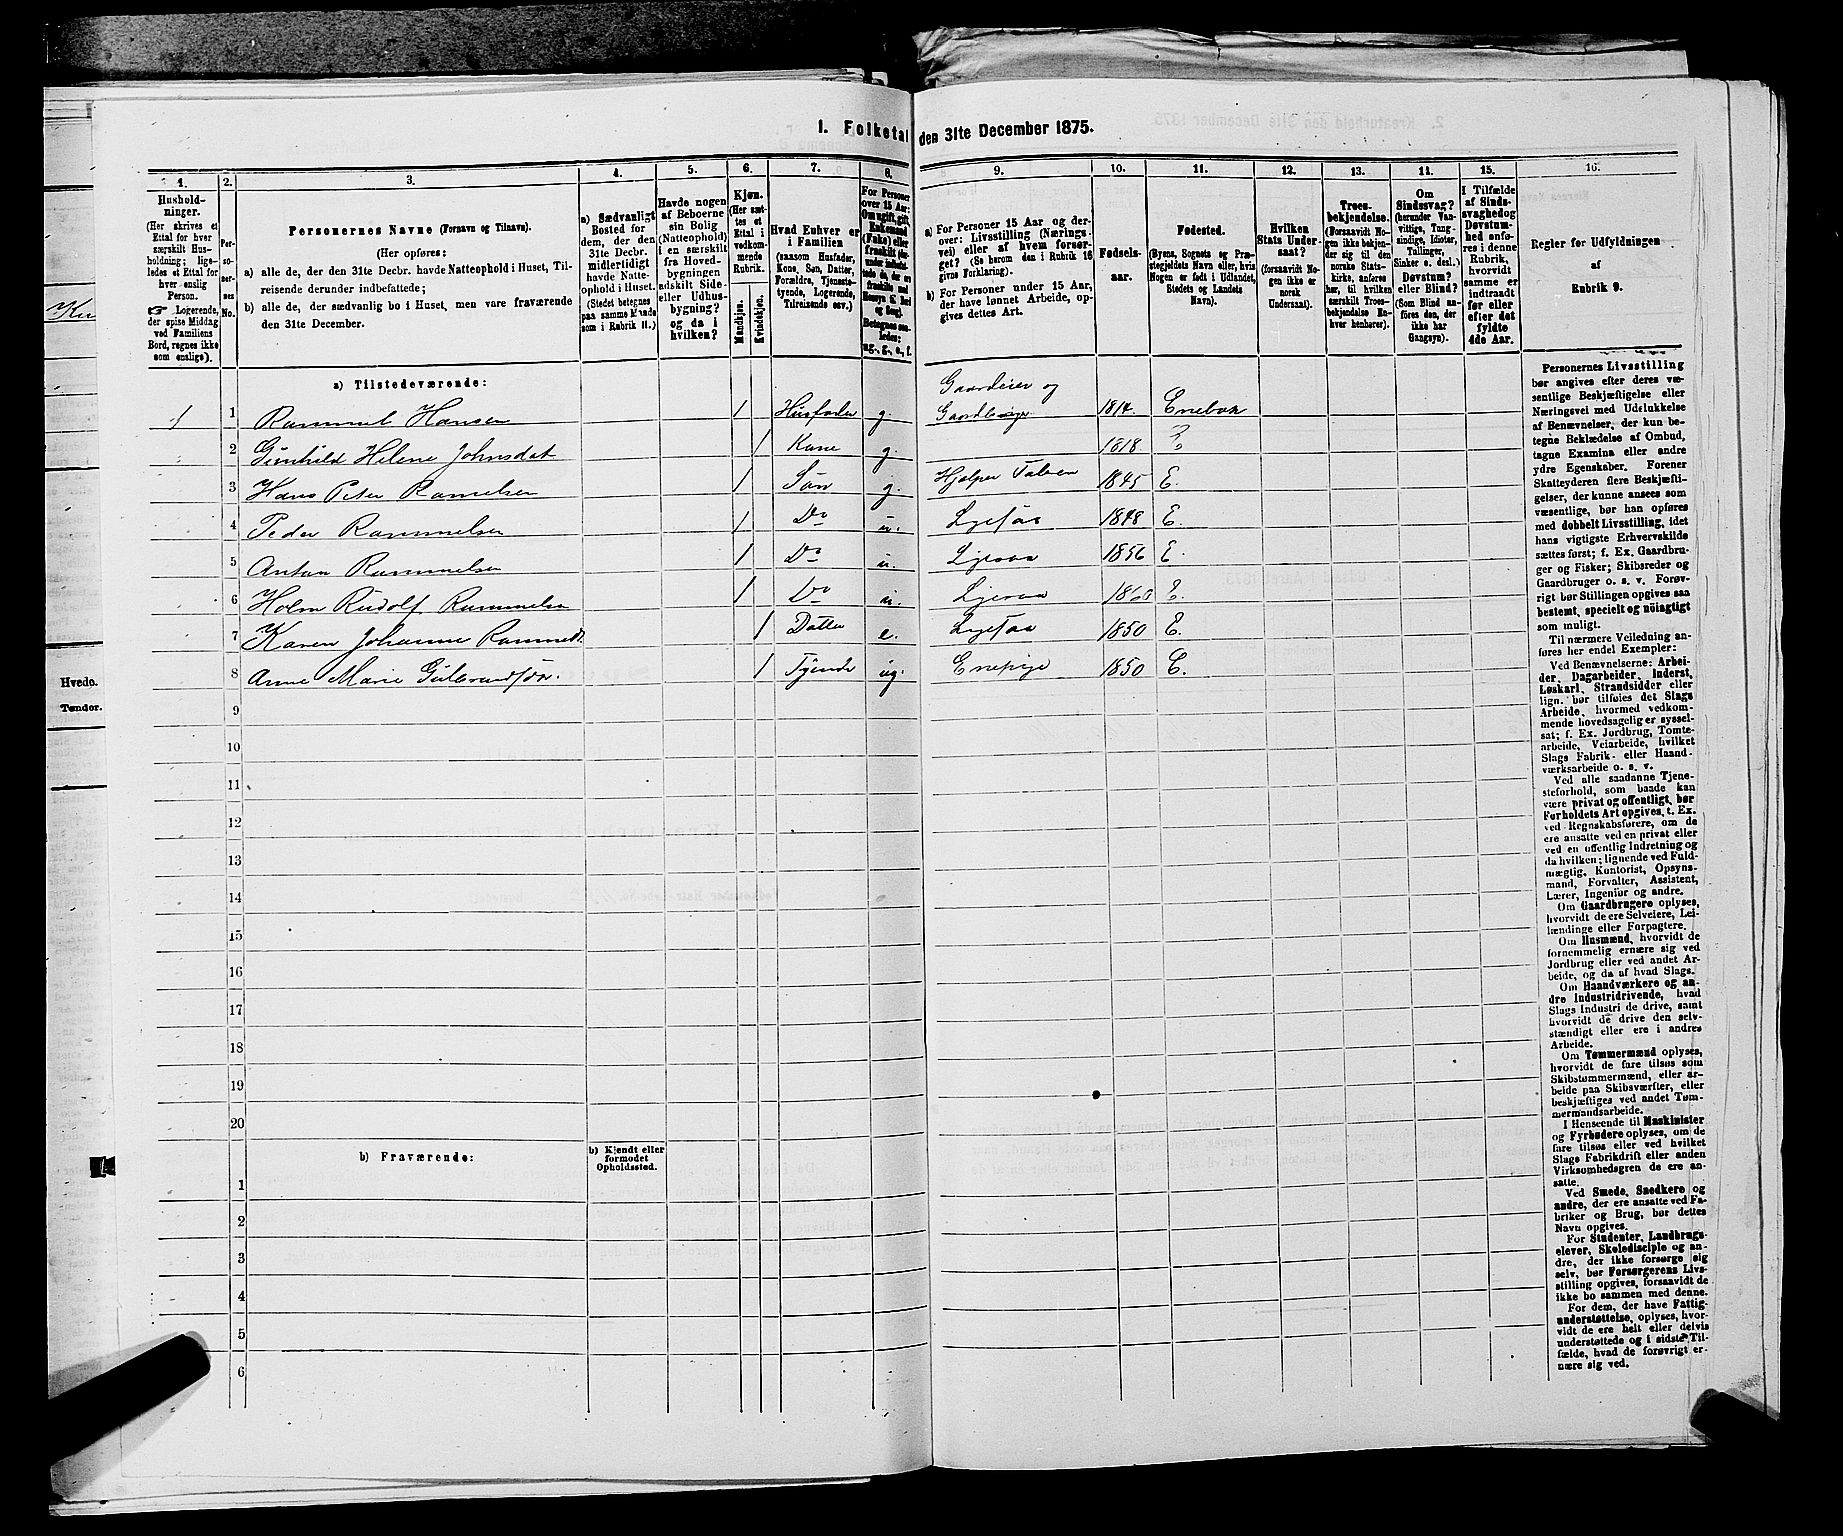 1. Folketal den 31te December 1875.
1.
Hushold-
ninger.
(Her skrives et
Ettal for hver
særskilt Hus-
holdning; lige-
ledes et Ettal for
hver enslig
Person.
☞ Logerende,
der spise Middag
ved Familiens
Bord, regnes ikke
som enslige).
2.
Per-
so-
ner-
nes
No.
3.
Personernes Navne (Fornavn og Tilnavn).
(Her opføres:
a) alle de, der den 31te Decbr. havde Natteophold i Huset, Til-
reisende derunder indbefattede;
b) alle de, der sædvanlig bo i Huset, men vare fraværende
den 31te December.
4.
a) Sædvanligt
Bosted for
dem, der den
31te Decbr.
midlertidigt
havde Natte-
ophold i Huset.
(Stedet betegnes
paa samme Maade
som i Rubrik 11.)
5.
Havde nogen
af Beboerne
sin Bolig
(Natteophold)
i en særskilt
fra Hoved-
bygningen
adskilt Side-
eller Udhus-
bygning?
og da i
hvilken?
6.
Kjøn.
(Her sæt-
tes et
Ettal i
vedkom-
mende
Rubrik.
Mandkjøn.
Kvindekjøn.
7.
Hvad Enhver er
i Familien
(saasom Husfader,
Kone, Søn, Datter,
Forældre, Tjeneste-
tyende, Logerende,
Tilreisende osv.)
8.
For Personer
over 15 Aar:
Om ugift, gift,
Enkemand
(Enke) eller
fraskilt
Betegnes saa-
ledes:
ug., g., e., f.
9.
a) For Personer 15 Aar og der-
over: Livsstilling (Nærings-
vei) eller af hvem forsør-
get? (Se herom den i Rubrik 16
givne Forklaring).
b) For Personer under 15 Aar,
der have lønnet Arbeide, op-
gives dettes Art.
10.
Fødsels-
aar.
11.
Fødested.
(Byens, Sognets og Præ-
stegjeldets Navn eller, hvis
Nogen er født i Udlandet,
Stedets og Landets
Navn).
12.
Hvilken
Stats Under-
saat?
(forsaavidt No-
gen ikke er
norsk
Undersaat).
13.
Troes-
bekjendelse.
(Forsaavidt No-
gen ikke bekjen-
der sig til den
norske Stats-
kirke, anføres
her, til hvilken
særskilt Troes-
bekjendelse En-
hver henhører).
11.
Om
Sindssvag?
(herunder Van-
vittige, Tung-
sindige, Idioter,
Tullinger,
Sinker o. desl.)
Døvstum?
eller Blind?
(Som Blind an-
føres den, der
ikke har
Gangsyn).
15.
I Tilfælde
af Sinds-
svaghed og
Døvstum-
hed anfø-
res i denne
Rubrik,
hvorvidt
samme er
indtraadt
før eller
efter det
fyldte
4de Aar.
16.
Regler for Udfyldningen
af
Rubrik 9.
a) Tilstedeværende:
1 1 Rammel Hansen 1 Husfader g. Gaardeier og
Gaardbruger 1814. Enebak
2 Gunhild Helene Johnsdat 1 Kone g. 1818. E
3 Hans Peter Ramelsen 1 Søn g. Hjelper Faderen 1845 E.
4 Peder Rammelsen 1 Do u. 1848 E.
5 Anton Rammelsen 1 Do u. 1856 E.
6 Holm Rudolf Rammelsen 1 Do u. 1860 E.
7 Karen Johanne Rammelsd. 1 Datter e. 1850 E.
8 Anne Marie 1 Tyende ug. 1850 E.
9
10
11
12
13
14
15
16
17
18
19
20
b) Fraværende:
b) Kjendt eller
formodet
Opholdssted.
1
2
3
4
5
6
Personernes Livsstilling
bør angives efter deres væ-
sentlige Beskjæftigelse eller
Næringsvei med Udelukkelse
af Benævnelser, der kun be-
tegne Beklædelse af Ombud,
tagne Examina eller andre
ydre Egenskaber. Forener
Skatteyderen flere Beskjæfti-
gelser, der kunne ansees som
væsentlige, bør han opføres
med dobbelt Livsstilling, idet
hans vigtigste Erhvervskilde
sættes først; f. Ex. Gaardbru-
ger og Fisker; Skibsreder og
Gaardbruger o. s. v. Forøv-
rigt bør Stillingen opgives saa
bestemt, specielt og nøiagtigt
som muligt.
Til nærmere Veiledning an-
føres her endel Exempler:
Ved Benævnelserne: Arbei-
der, Dagarbeider, Inderst,
Løskarl, Strandsidder eller
lign. bør tilføies det Slags
Arbeide, hvormed vedkom-
mende hovedsagelig er syssel-
sat; f. Ex. Jordbrug, Tomte-
arbeide, Veiarbeide, hvilket
Slags Fabrik- eller Haand-
værksarbeide o. s. v.
Ved alle saadanne Tjene-
steforhold, som baade kan
være privat og offentligt, bør
Forholdets Art opgives, t. Ex.
ved Regnskabsførere, om de
ere ansatte ved en privat eller
ved en offentlig Indretning og
da hvilken; lignende ved Fuld-
mægtig, Kontorist, Opsyns-
mand, Forvalter, Assistent,
Lærer, Ingeniør og andre.
Om Gaardbrugere oplyses,
hvorvidt de ere Selveiere, Lei-
lændinge eller Forpagtere.
Om Husmænd, hvorvidt de
fornemmelig ernære sig ved
Jordbrug eller ved andet Ar-
beide, og da af hvad Slags.
Om Haandværkere og an-
dre Industridrivende, hvad
Slags Industri de drive, samt
hvorvidt de drive den selv-
stændigt eller ere i andres
Arbeide.
Om Tømmermænd oplyses,
hvorvidt de fare tilsøs som
Skibstømmermænd, eller ar-
beide paa Skibsværfter, eller
beskjæftiges ved andet Tøm-
mermandsarbeide.
I Henseende til Maskinister
og Fyrbødere oplyses, om de
fare tilsøs eller ved hvilket
Slags Fabrikdrift eller anden
Virksomhedsgren de ere an-
satte.
Ved Smede, Snedkere og
andre, der ere ansatte ved Fa-
briker og Brug, bør dettes
Navn opgives.
For Studenter, Landbrugs-
elever, Skoledisciple og an-
dre, der ikke forsørge sig
selv, bør Forsørgerens Livs-
stilling opgives, forsaavidt de
ikke bo sammen med denne.
For dem, der have Fattig-
understøttelse, oplyses, hvor-
vidt de ere helt eller delvis
understøttede og i sidste Til-
fælde, hvad de forøvrigt er-
nære sig ved.
Hvede.
Tønder.